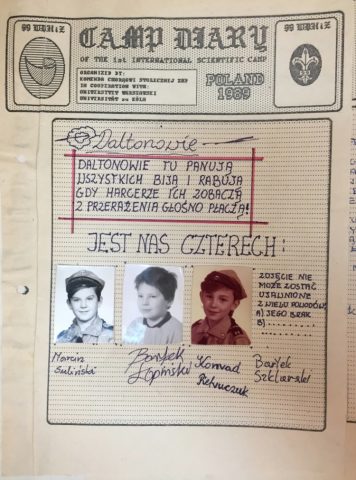 ZHIRU 66
ZHIRU 66
CAMP DIARY
OF THE 1st INTERNATIONAL SCIENTIFIC CAMP
ORGANIZED BY:
KOMENDA CHORĄGWI STOŁECZNEJ ZHP
IN COOPERATION WITH:
UNIWERSYTET WARSZAWSKI
UNIVERSITÄT zu KÖLN
POLAND
1989
Daltonowie
DALTONOWIE TU PANUJĄ
WSZYSTKICH BIJĄ I RABUJĄ
GDY HARCERZE ICH ZOBACZĄ
Z PRZERAŻENIA GŁOŚNO PŁACZĄ!
JEST NAS CZTERECH:
ZDJĘCIE NIE
MOŻE ZOSTAĆ
Z WIELU POWODÓW:
A) JEGO BRAK
B)..........
Marcin
Suliński
Bartek
Konrad
Bartek
Szklarski